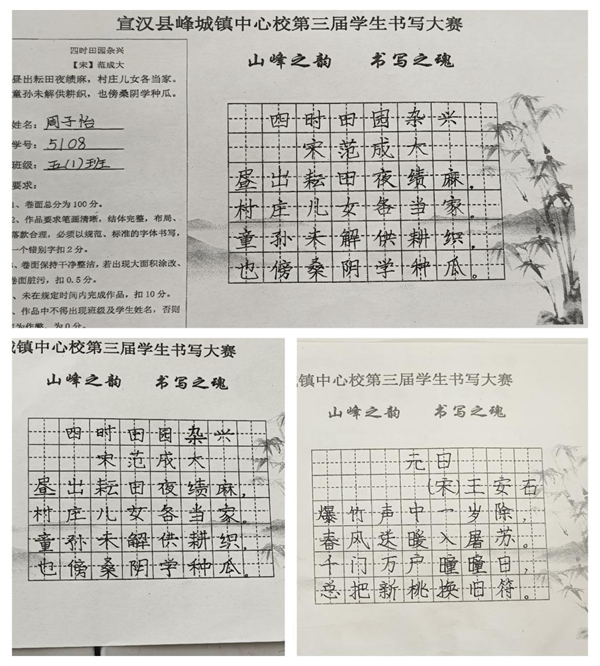 宣汉县峰城镇中心校第三届学生书写大赛
山峰之韵 书写之魂
四时田园杂兴
【宋】范成大
昼出耘田夜绩麻，村庄儿女各当家。
童孙未解供耕织，也傍桑阴学种瓜。
姓名：周子怡
学号：5108
班级：五(1)班
要求：
1、卷面总分为100分。
2、作品要求笔画清晰，结体完整，布局、
落款合理，必须以规范、标准的字体书写，
一个错别字扣2分。
、卷面保持干净整洁，若出现大面积涂改、
卷面脏污，扣0.5分。
、未在规定时间内完成作品，扣10分。
、作品中不得出现班级及学生姓名，否则
为作弊，为0分。
四时田园杂兴
宋范成大
昼出耘田夜绩麻，
村庄儿女各当家。
童孙未解供耕织，
也傍桑阴学种瓜。
城镇中心校第三届学生书写大赛
山峰之韵 书写之魂
四时田园杂兴
宋范成大
昼出耘田夜绩麻，
村庄儿女各当家。
童孙未解供耕织，
也傍桑阴学种瓜。
镇中心校第三届学生书写大赛
山峰之韵 书写之魂
元日
(宋)王安石
爆竹声中一岁除，
春风送暖入屠苏。
千门万户曈曈日，
总把新桃换旧符。